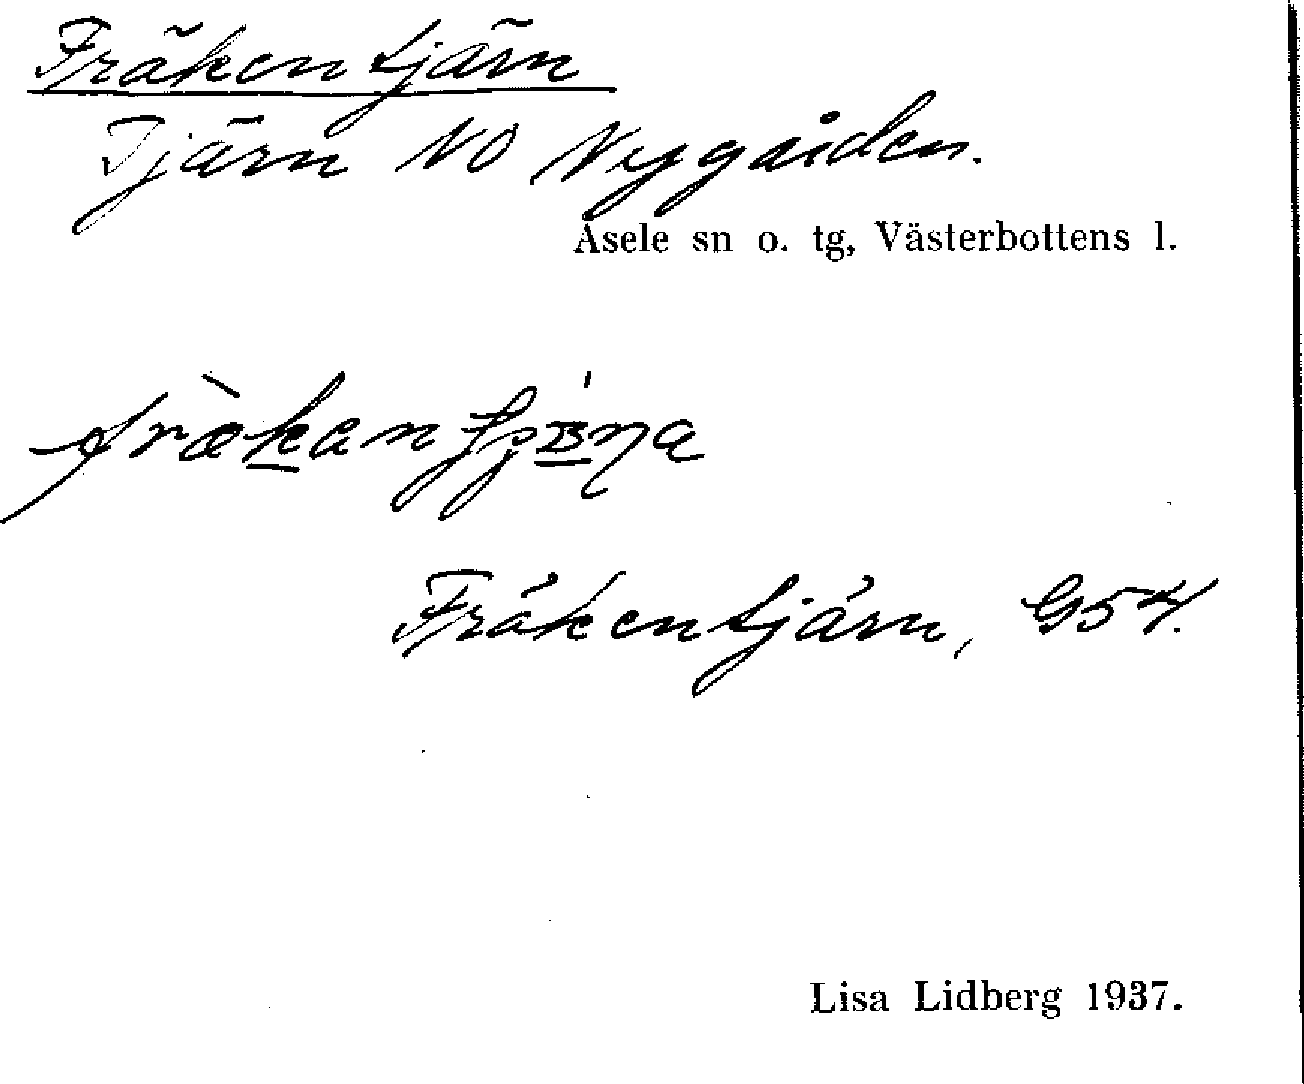 Fräkentjärn
Tjärn NO Nygården.
Åsele sn o. tg, Västerbottens l.
Fräkentjärn, G54.
Lisa Lidberg 1937.